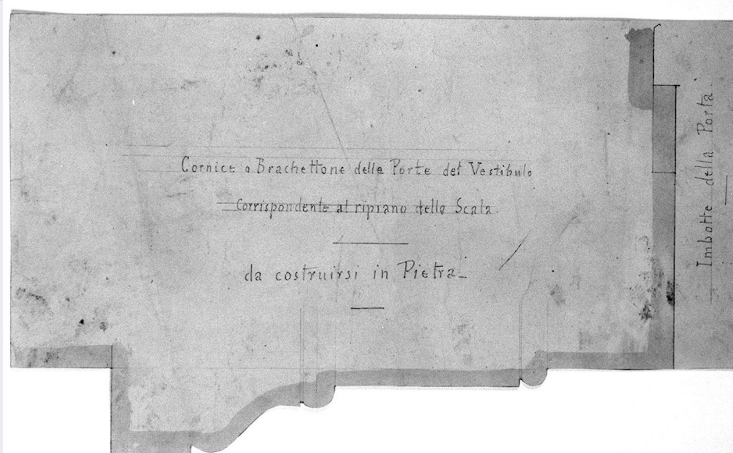 Cornice o Brachettone delle Porte del Vestibulo
Corrispondente al ripiano della Scala
da costruirsi in Pietra
Imbotte della Porta